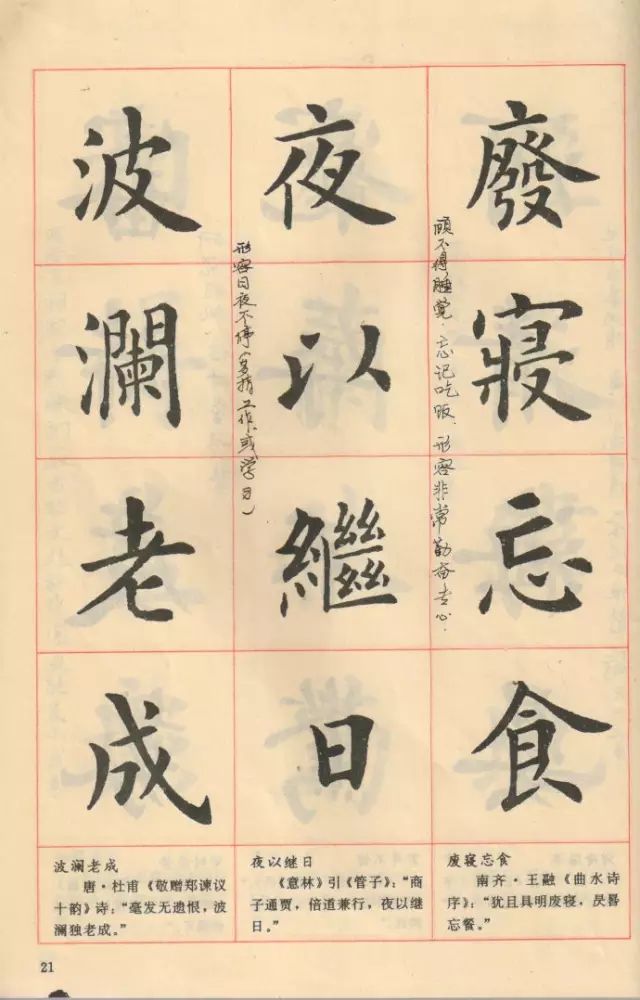 廢寢忘食
顾不得睡觉.忘记吃饭.形容非常勤奋专心.
夜以繼日
形容日夜不停(多指工作或学习)
波瀾老成
废寝忘食
南齐·王融《曲水诗
序》:“犹且具明废寝,昃晷
忘餐。”
夜以继日
《意林》引《管子》:“商
子通贾,倍道兼行,夜以继
日。”
波澜老成
唐·杜甫《敬赠郑谏议
十韵》诗:“毫发无遗恨,波
澜独老成。”
21